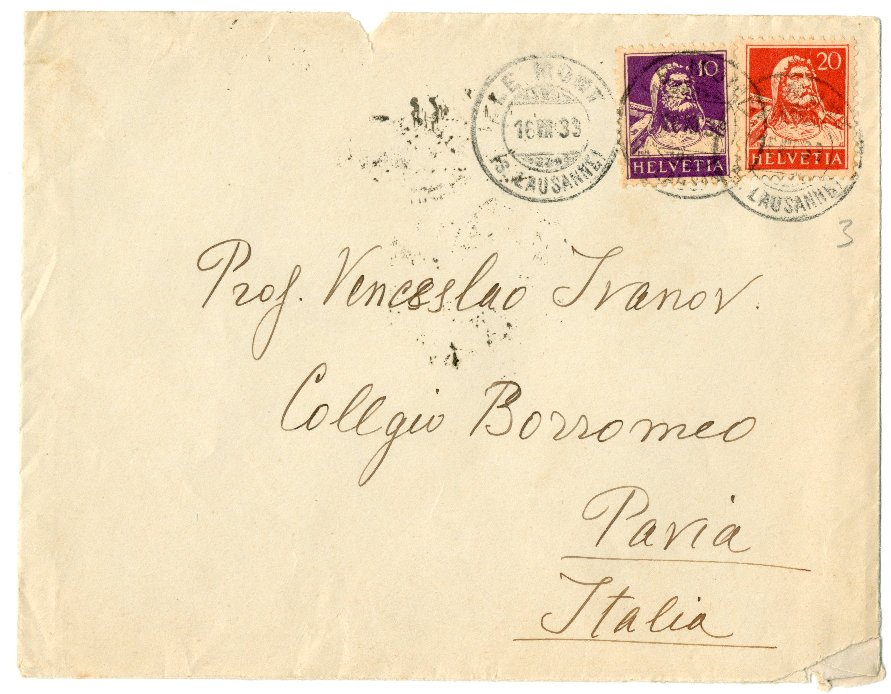 LE MONT
16 VII 33
(S. LAUSANNE)
10
HELVETIA
20
HELVETIA
LAUSANNE)
3
Prof. Venceslao Ivanov.
Collgio Borromeo
Pavia
Italia